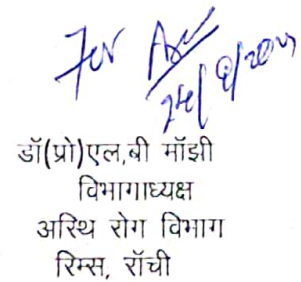 For
डॉ(प्रो)एल,बी मॉझी
विभागाध्यक्ष
अस्थि रोग विभाग
रिम्स, रॉची